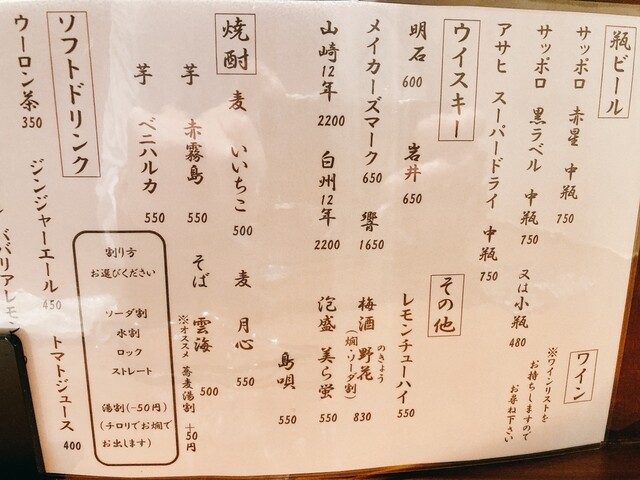 瓶ビール
サッポロ 赤星 中瓶 750
サッポロ 黒ラベル 中瓶 750 又は小瓶 480
アサヒ スーパードライ 中瓶 750
ワイン
※ワインリストを
お持ちしますので
お尋ね下さい
ウイスキー
明石 600 岩井 650
メイカーズマーク 650 響 1650
山崎12年 2200 白州12年 2200
その他
レモンチューハイ 550
梅酒 野花 のきょう (燗・ソーダ割) 830
泡盛 美ら蛍 550
島唄 550
焼酎
麦 いいちこ 500 麦 月心 550
芋 赤霧島 550 そば 雲海 500
※オススメ 蕎麦湯割 +50円
芋 ベニハルカ 550
割り方
お選びください
ソーダ割
水割
ロック
ストレート
湯割(−50円)
(チロリでお燗で
お出します)
ソフトドリンク
ウーロン茶 350 ジンジャーエール 450 トマトジュース 400
ババリアレモン